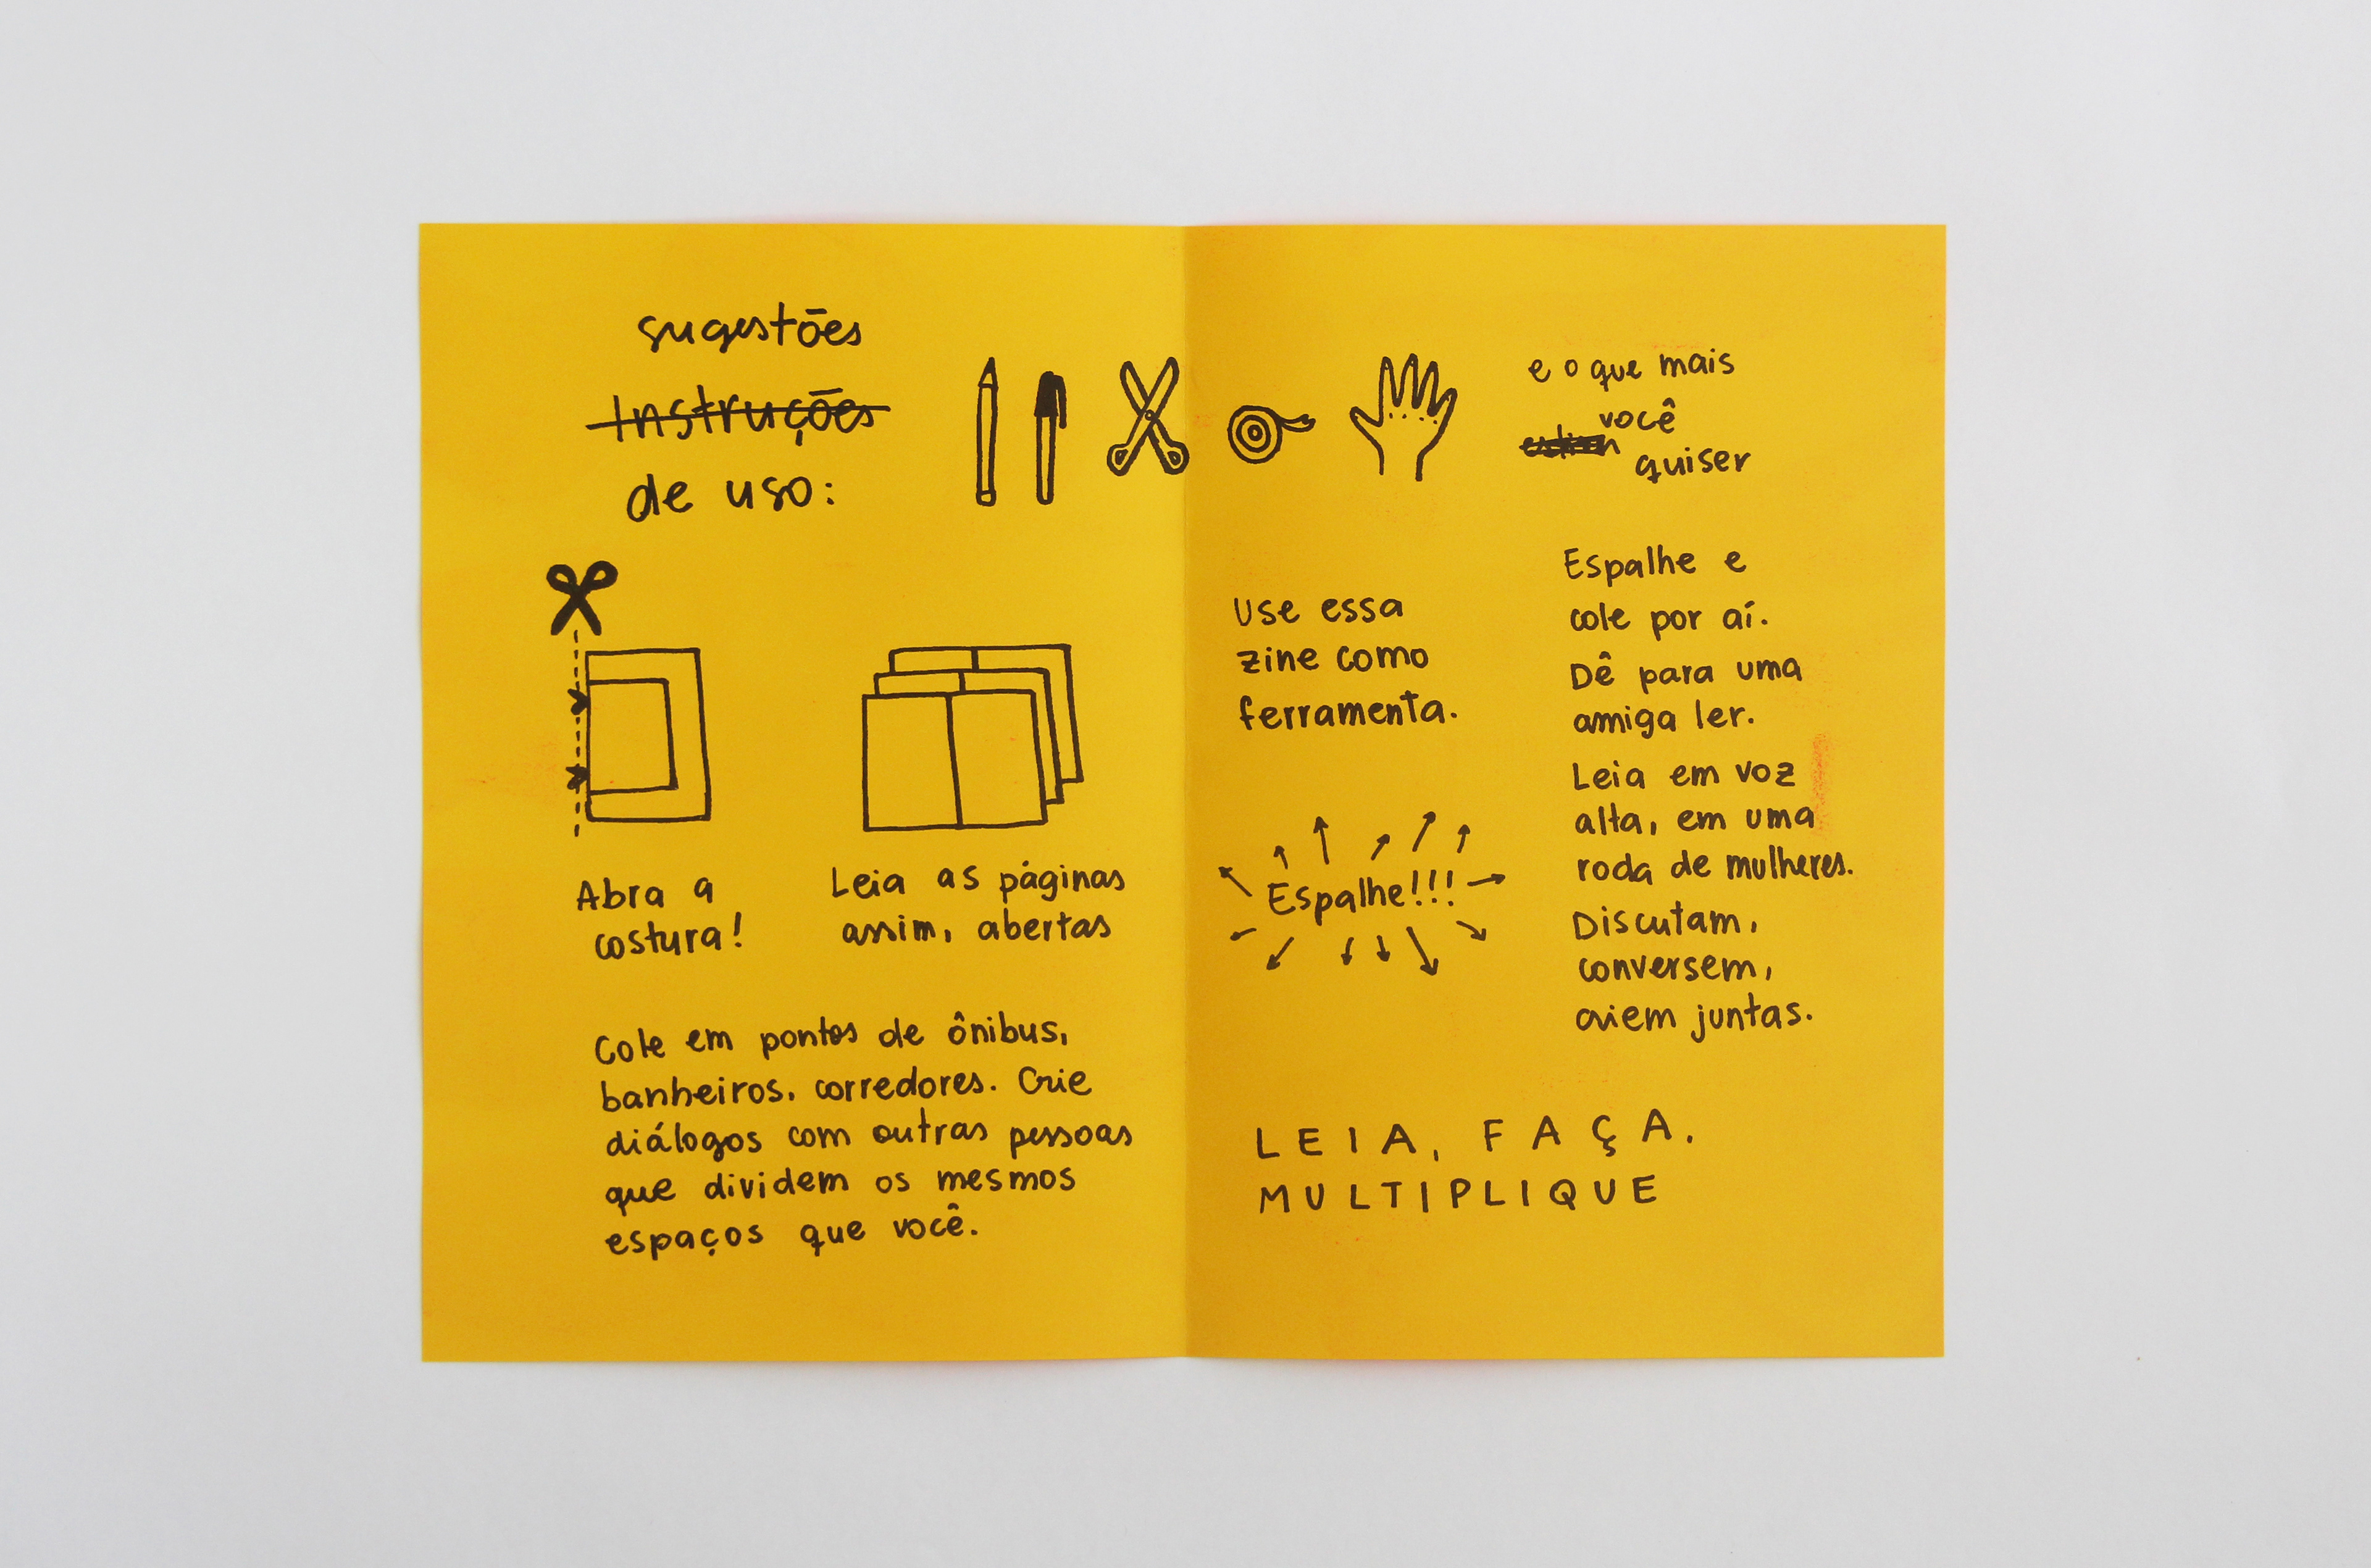 sugestões
Instruções
de uso:
e o que mais
você
quiser
Abra a
costura!
Leia as páginas
assim, abertas
Cole em pontos de ônibus,
banheiros, corredores. Crie
diálogos com outras pessoas
que dividem os mesmos
espaços que você.
Use essa
zine como
ferramenta.
Espalhe!!!
Espalhe e
cole por aí.
Dê para uma
amiga ler.
Leia em voz
alta, em uma
roda de mulheres.
Discutam,
conversem,
criem juntas.
LEIA, FAÇA,
MULTIPLIQUE